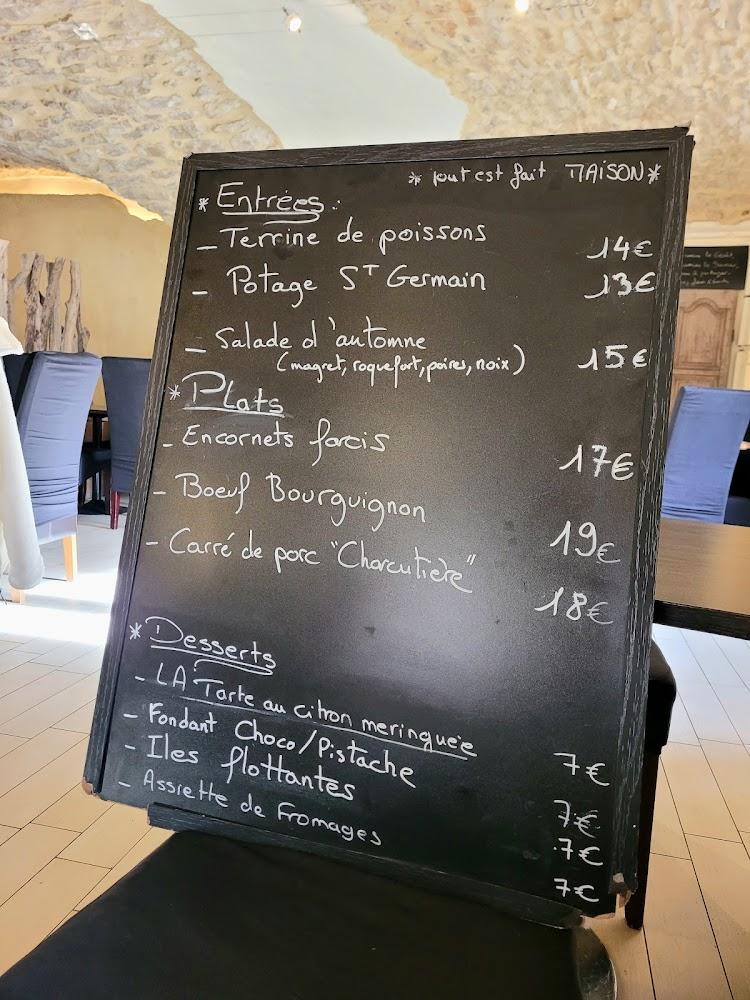 * tout est fait MAISON *
* Entrées :
- Terrine de poissons 14€
- Potage ST Germain 13€
- Salade d'automne
(magret, roquefort, poires, noix) 15€
* Plats
- Encornets farcis 17€
- Boeuf Bourguignon 19€
- Carré de porc "Charcutière" 18€
* Desserts
- LA Tarte au citron meringuée 7€
- Fondant Choco/Pistache 7€
- Iles flottantes 7€
- Assiette de Fromages 7€